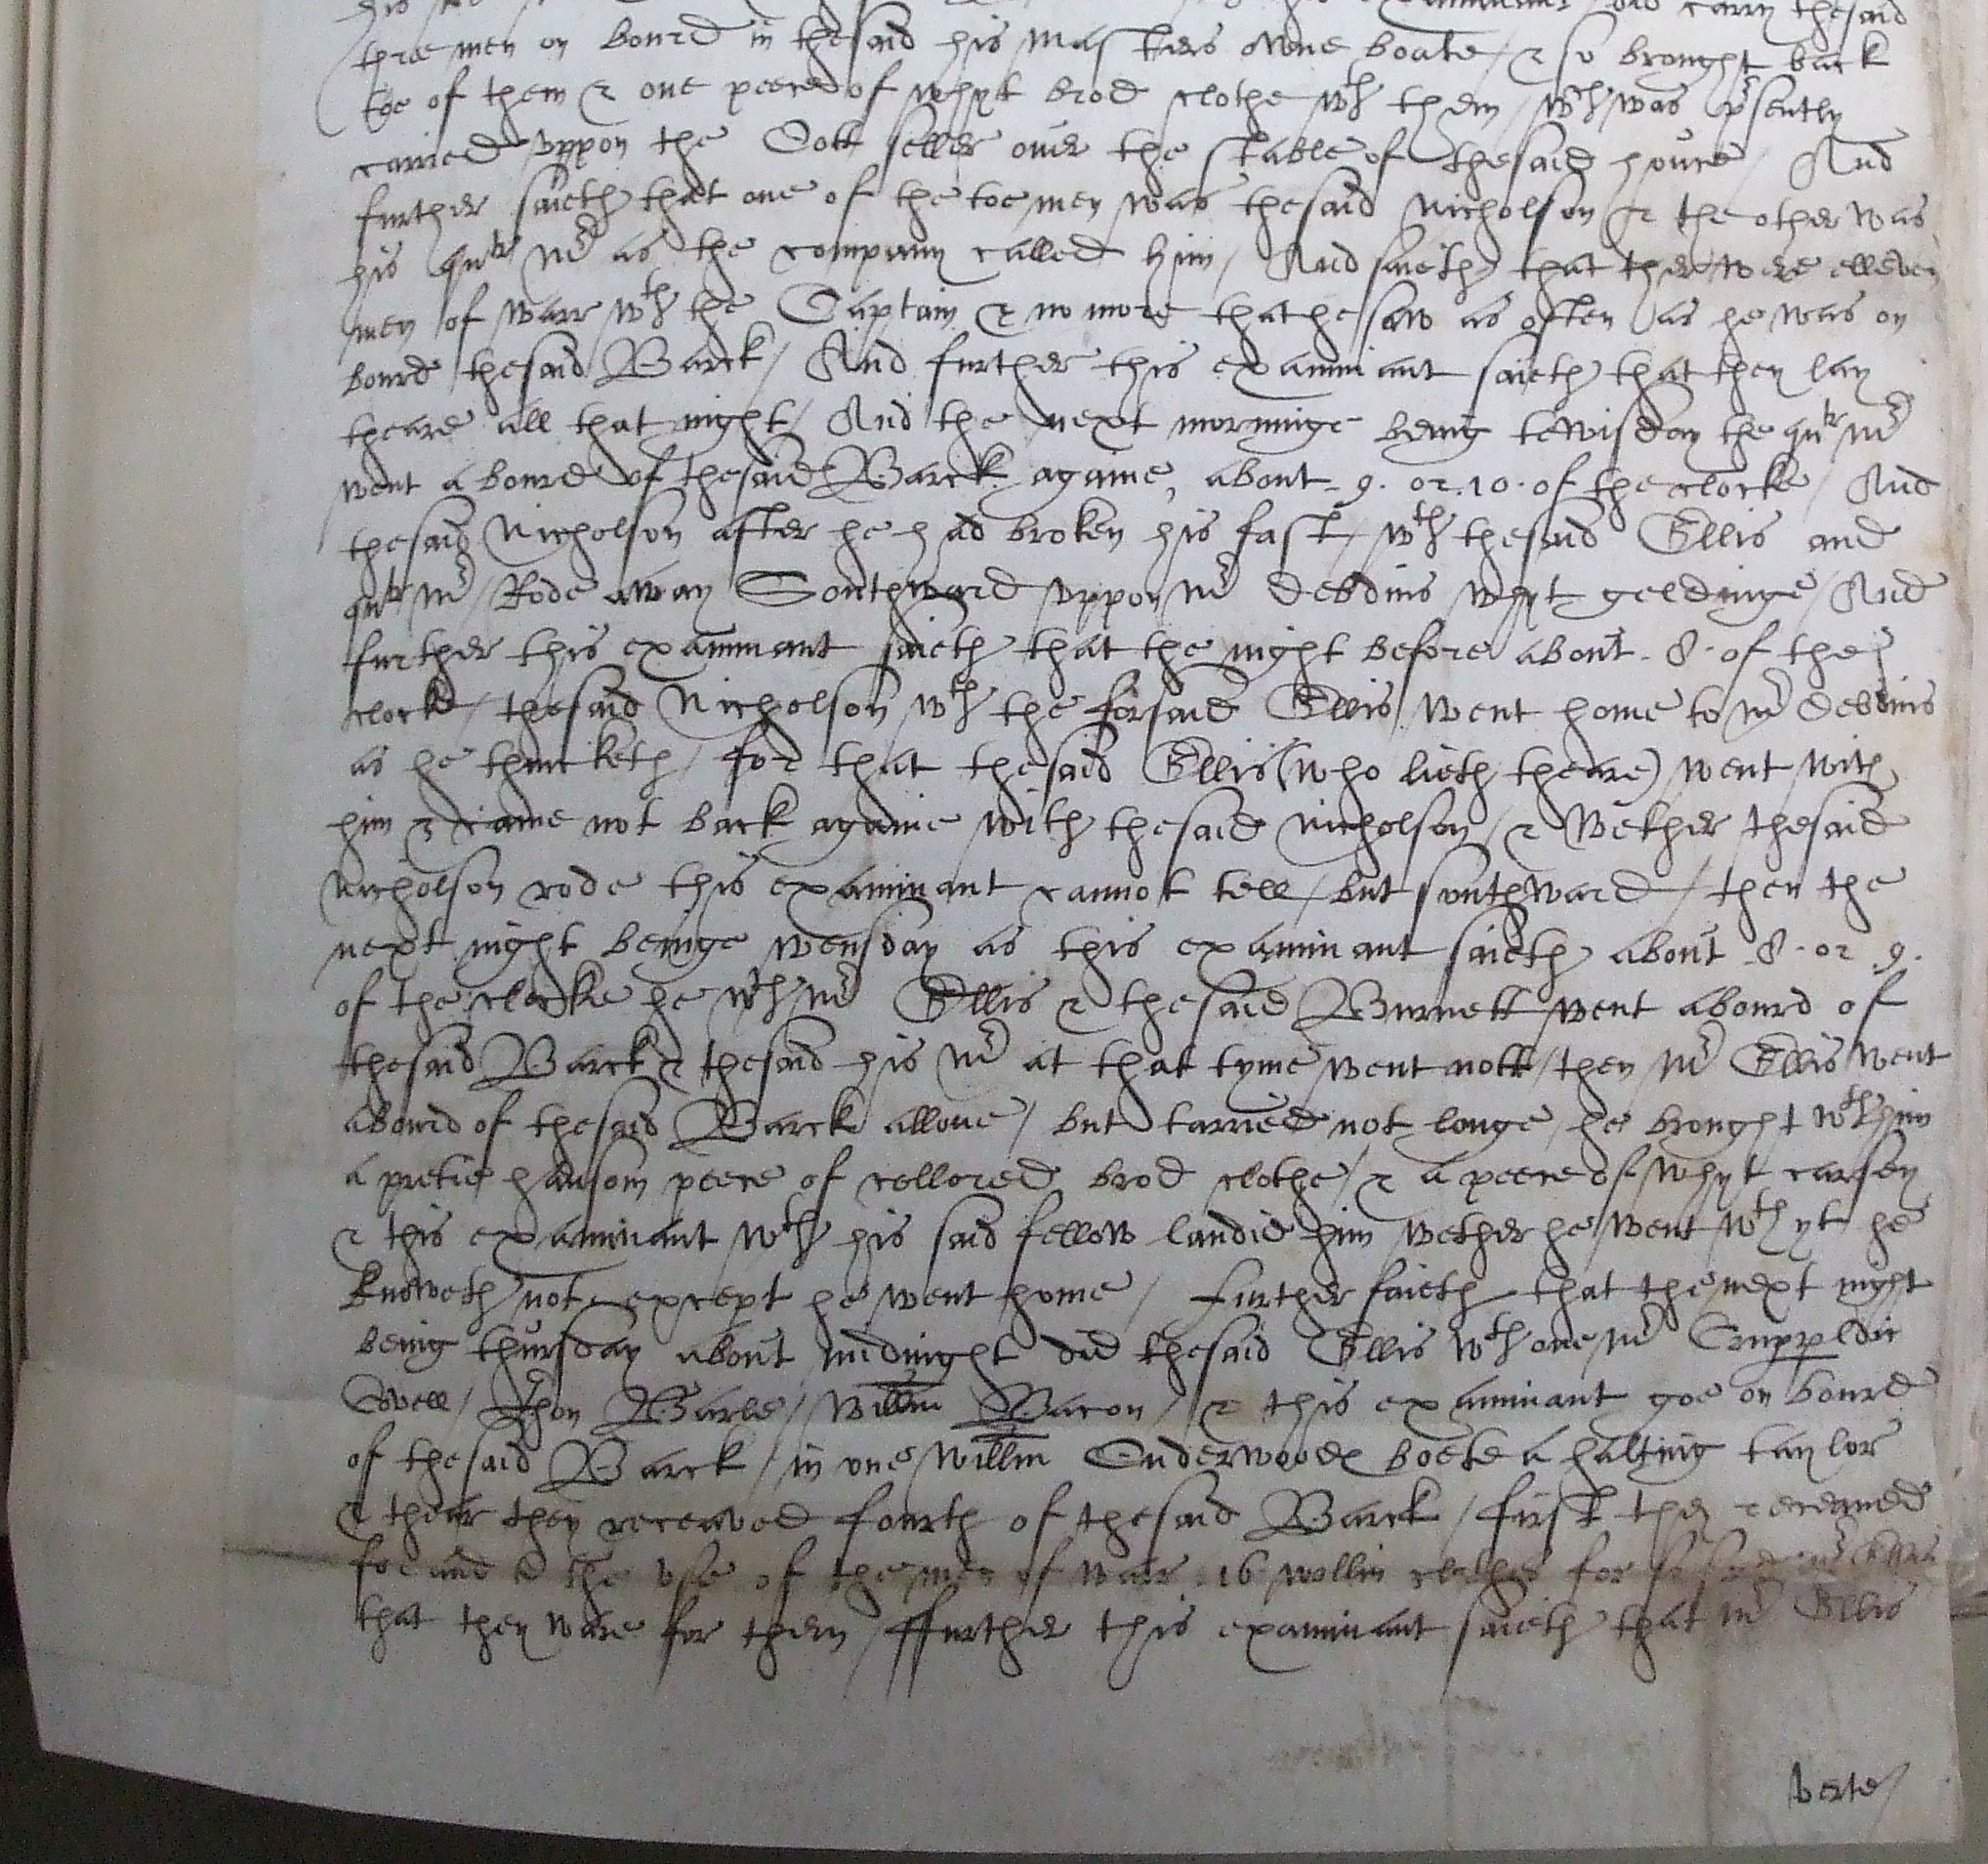 carry thesaid
thre men on bourd in thesaid his masters owne boate / & so brought back
toe of them & one peece of whyt brod clothe wth them / wch was psently
carried vppon the Sott seller ouer the stable of thesaid house / And
further saieth that one of the toe men was thesaid Nicholson & the other was
his qutr mr as the company called him / And saieth that ther were elleven
men of warr wth the Captain & no more that he saw as often as he was on
bourd thesaid Barck / And further this examinant saieth that they lay
theare all that night / And the next morninge being tewisday the qutr mr
went a bourd of thesaid Barck againe, about 9. or .10. of the clocke / And
thesaid Nicholson after he had broken his fast / wth thesaid Ellis and
qutr mr / Rode away Southward vppon mr debdins whyt geldinge / And
further this examinant saieth that the night before about .8. of the
clock / thesaid Nicholson wth the forsaid Ellis went home to mr debdins
as he thincketh / for that thesaid Ellis (who lieth theare) went with
him & came not back againe with thesaid Nicholson / & wether thesaid
Nicholson rode this examinant cannot tell / but southward / then the
next night beinge wensday as this examinant saieth about .8. or .9.
of the clocke he wth mr Ellis & thesaid Burnett went abourd of
thesaid Barck & thesaid his mr at that tyme went nott / then mr Ellis went
abourd of thesaid Barck allone / but tarried not longe / he brought wth him
a pretie hansom peece of collored brod clothe / & a peece of whyt carsey
& this examinant wth his said fellow landid him wether he went wth yt he
knoweth not except he went home / further saieth that the next night
being thursday about midnight did thesaid Ellis wth one mr Cruppldic
Covell / Jhon Barle / Willm Bacon / & this examinant goe on bourd
of thesaid Barck / in one Willm Onderwoods boete a halting taylor
& thear they receaved fourth of thesaid Barck / first they receaved
for and to the vse of the men of warr .16. wollin clothes for
that they ware for them / ffurther this examinant saieth that mr Ellis
verte /